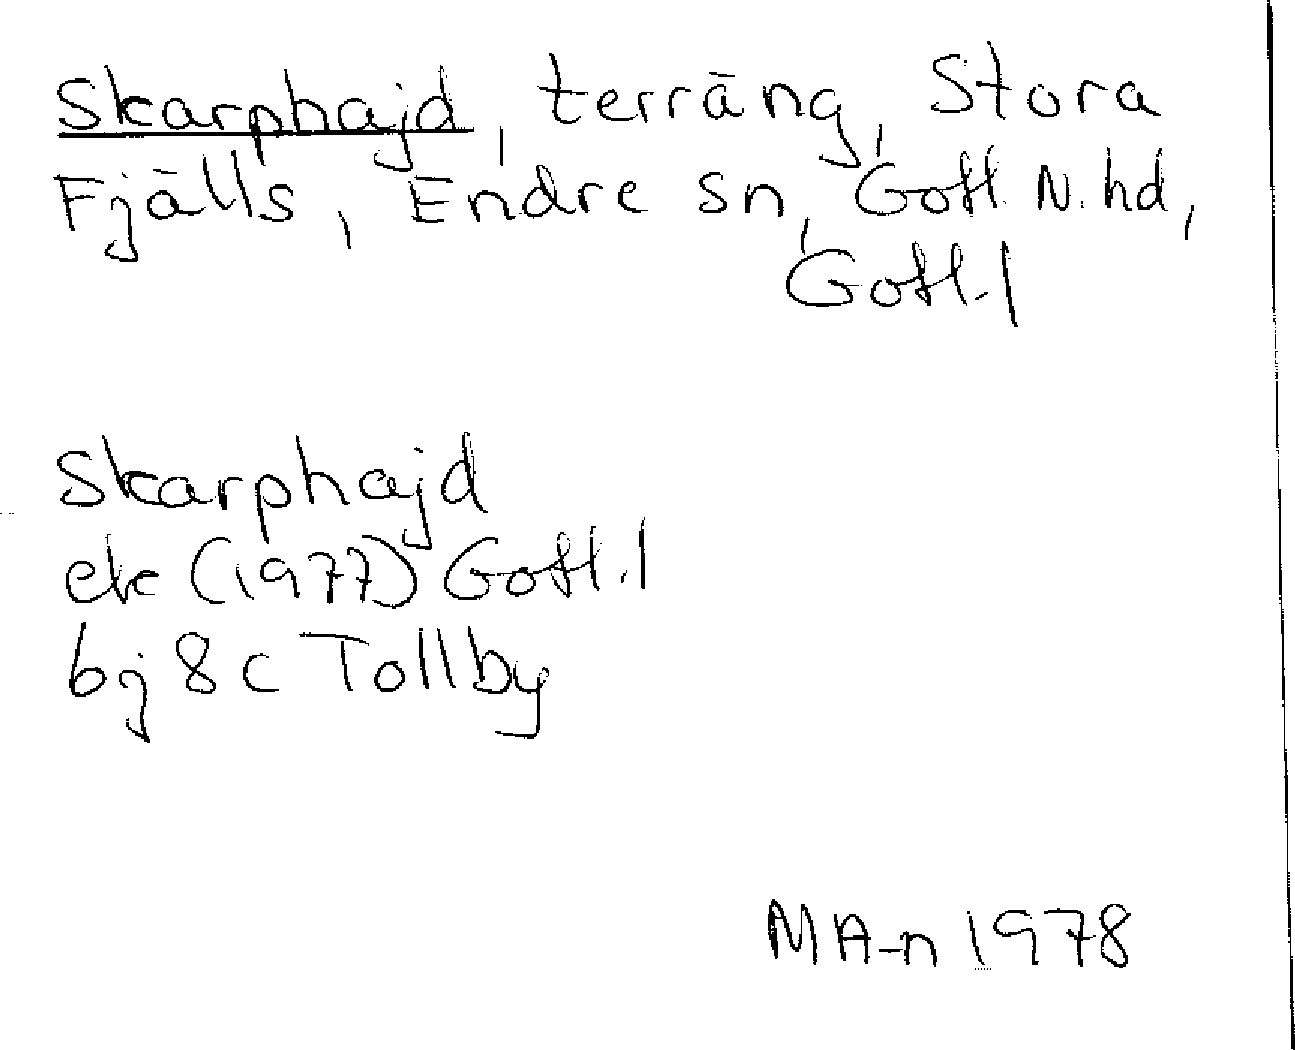 Skarphajd, terräng, Stora
Fjälls, Endre sn, Gotl. N. hd,
Gotl. l
Skarphajd
ek (1977) Gotl. l
bj 8c Tollby
MA-n 1978